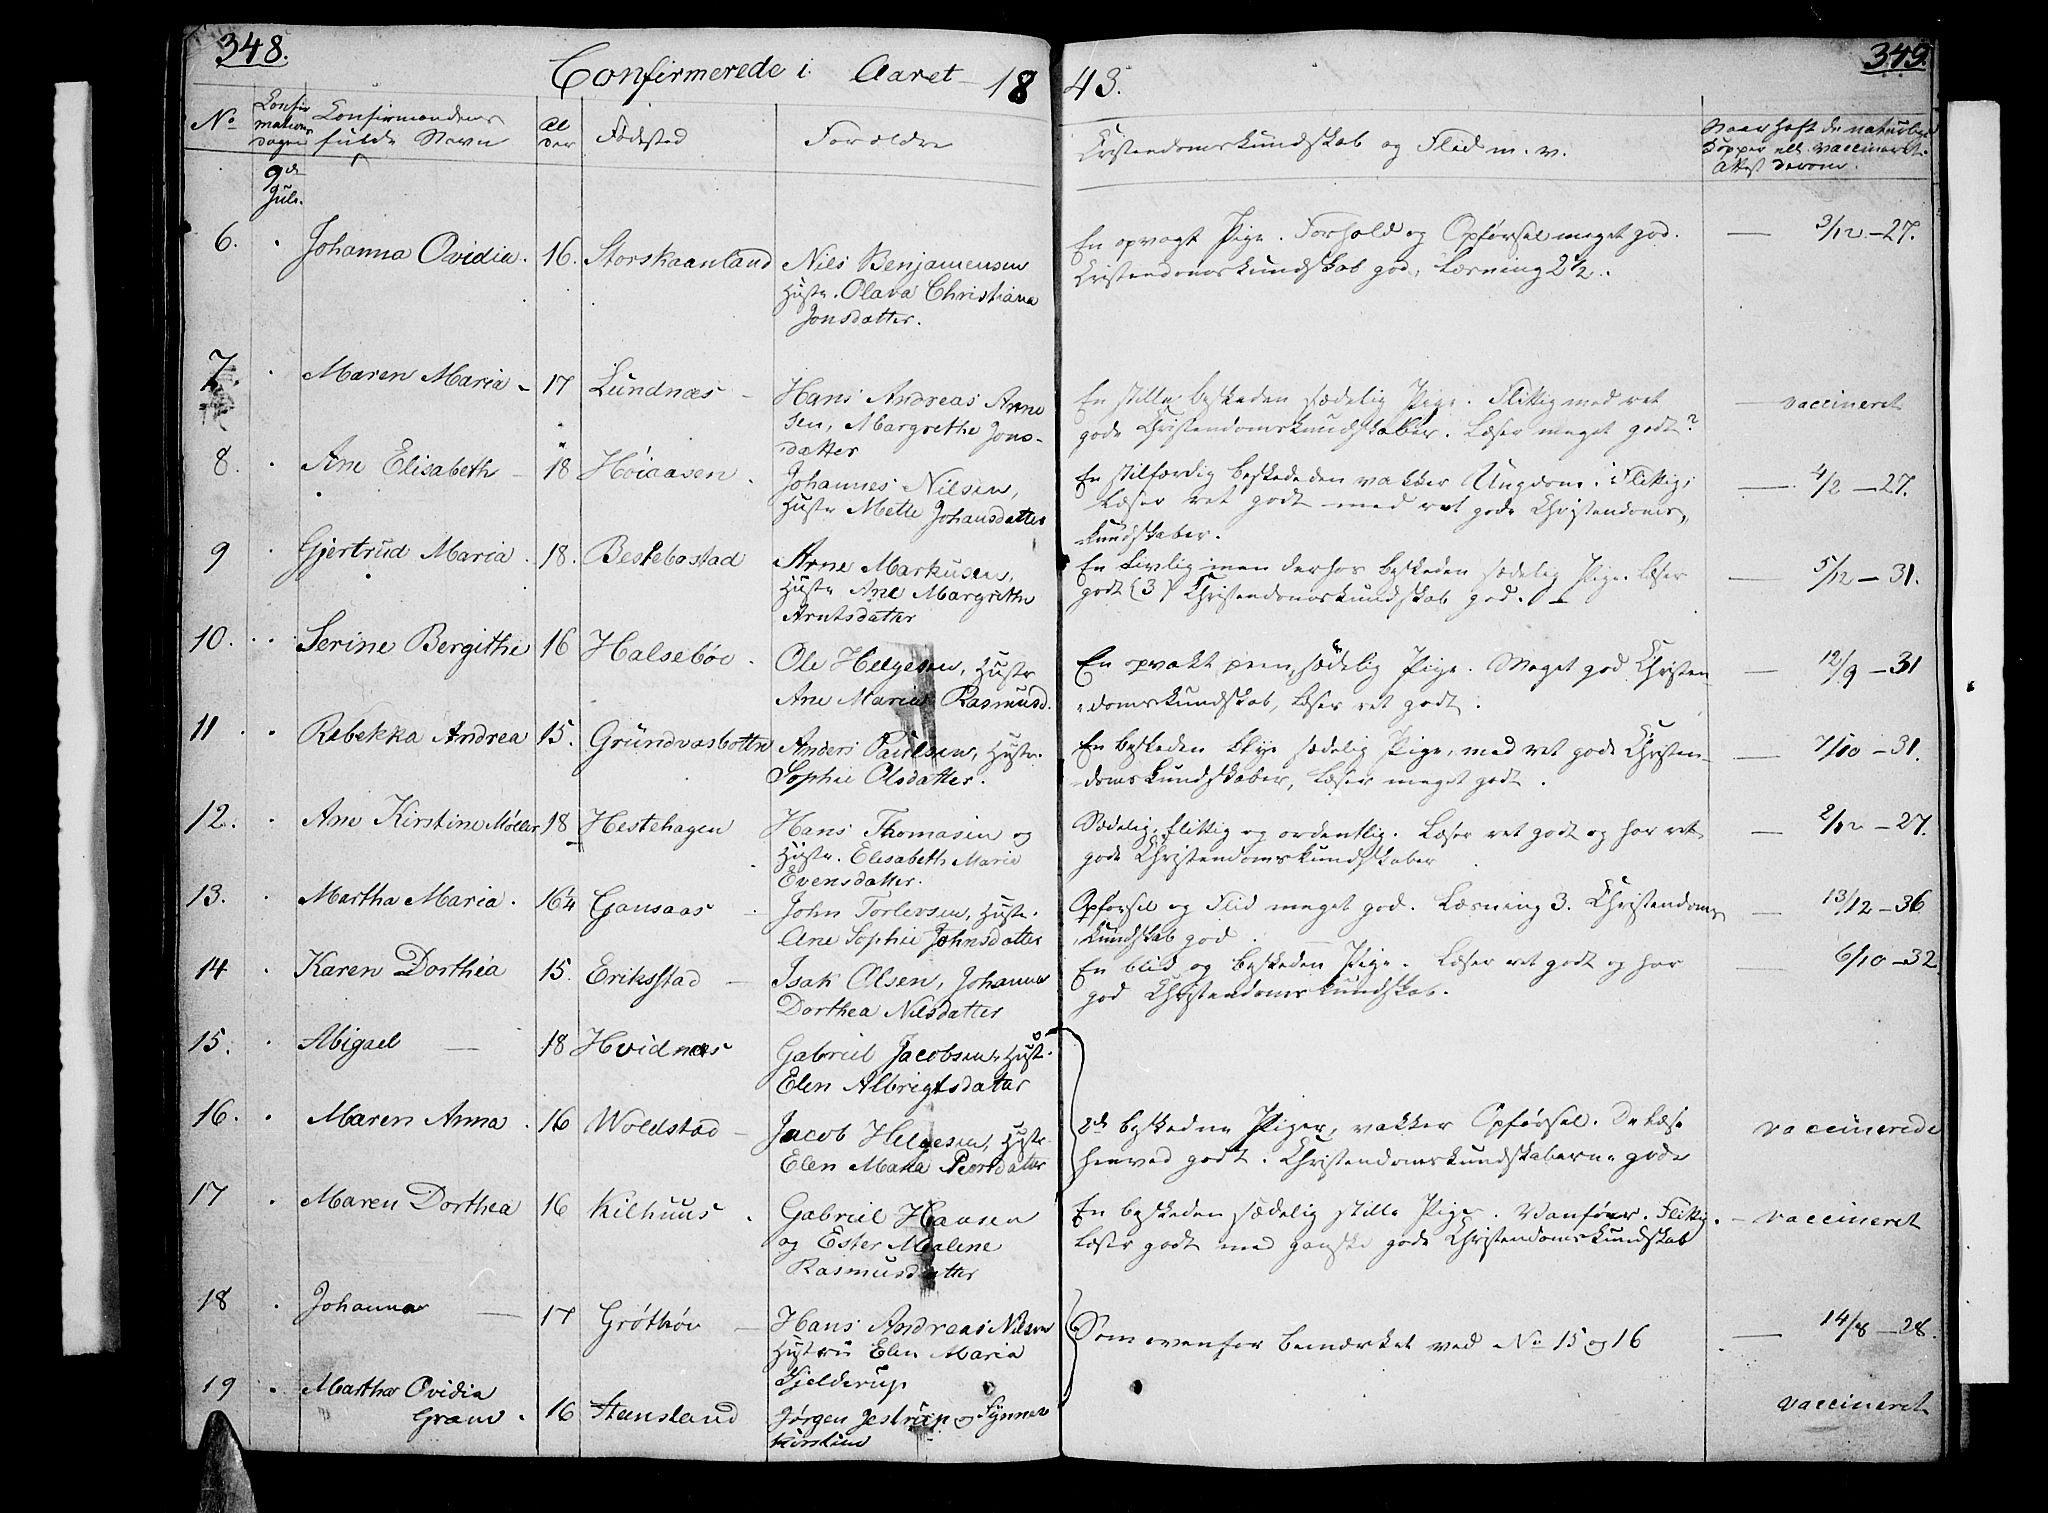 348.
349.
Confirmerede i Aaret 1843.
No
Confirmations Dagen
Confirmandens fulde Navn
Alder
Fødested
Forældre
Cristendomskundskab og Flid m. v.
Naar haft de naturlige Kopper ell. vaccineret. Attest derom.
9de Juli.
6. Johanna Ovidia. 16. Storskaanland Nils Benjamensen
Hustr. Olava Christiana
Jonsdatter.
En opvagt Pige. Forhold og Opførsel meget god.
Cristendomskundskab god, Læsning 2½.
— 3/12 - 27.
7. Maren Maria - 17 Lundnæs - Hans Andreas Arne
sen, Margrethe Jons-
datter
En stille beskeden sædelig Pige. Flittig med ret
gode Christendomskundskaber. Læser meget godt?
— vaccineret
8. Ane Elisabeth - 18 Høiaasen. Johannes Nilsen,
Hustr Mette Johansdatter
En stilfærdig beskeden vakker Ungdom. Flittig;
Læser ret godt med ret gode Christendoms-
kundskaber.
— 4/2 - 27.
9 Gjertrud Maria. 18. Bestebostad Arne Markusen,
Hustr Ane Margrethe
Arntsdatter
En Livlig men derhos beskeden sædelig Pige. Læser
godt (3) Christendomskundskab god.
— 5/12 - 31.
10. Serine Bergithe 16 Halsebøe. Ole Helgesen, Hustr
Ane Maria Rasmusd.
En opvakt pen, sædelig Pige. Meget god Christen-
domskundskab, Læser ret godt.
— 12/9 - 31
11. Rebekka Andrea 15. Grundvasbotten Anders Paulsen, Hustr.
Sophie Olsdatter.
En beskeden sædelig Pige, med ret gode Christen-
domskundskaber, Læser meget godt.
— 7/10 - 31.
12. Ane Kirstine Møller 18 Hestehagen Hans Thomasen og
Hustr. Elisabeth Marie
Evensdatter.
Sædelig, flittig og ordentlig. Læser ret godt og har ret
gode Christendomskundskaber
— 2/12 - 27.
13. Martha Maria. 16¼ Gausaas John Torlevsen, Hustr.
Ane Sophie Johnsdatter
Opførsel og Flid meget god. Læsning 3. Christendoms
kundskab god
— 13/12 - 36
14 Karen Dorthea 15. Eriksstad - Isak Olsen, Johanna
Dorthea Nilsdatter
En blid og beskeden Pige. Læser ret godt og har
god Christendomskundskab.
— 6/10 - 32
15. Abigael — 18 Hvidnæs Gabriel Jacobsen, Hust.
Elen Albrigtsdatter
16. Maren Anna. 16 Woldstad - Jacob Helgesen, Hustr
Elen Maria Peersdatter
2de beskedne Piger, vakker Opførsel. De læse
henved godt. Christendomskundskaberne gode
vaccinerede
17 Maren Dorthea 16 Kilhuus. Gabriel Hansen
og Ester Malene
Rasmusdatter
En beskeden sædelig stille Pige. Vanfør. Flittig.
Læser godt med ganske gode Christendomskundskab
— vaccineret
18 Johanna — 17 Grøthøe - Hans Andreas Nilsen
Hustru Elen Maria
Kjelderup
Som ovenfor bemærket ved No 15 og 16
— 14/8 - 28.
19 Martha Ovidia
Gram. 16 Steensland Jørgen Jestrup og Synnev
Kirstine
vaccineret